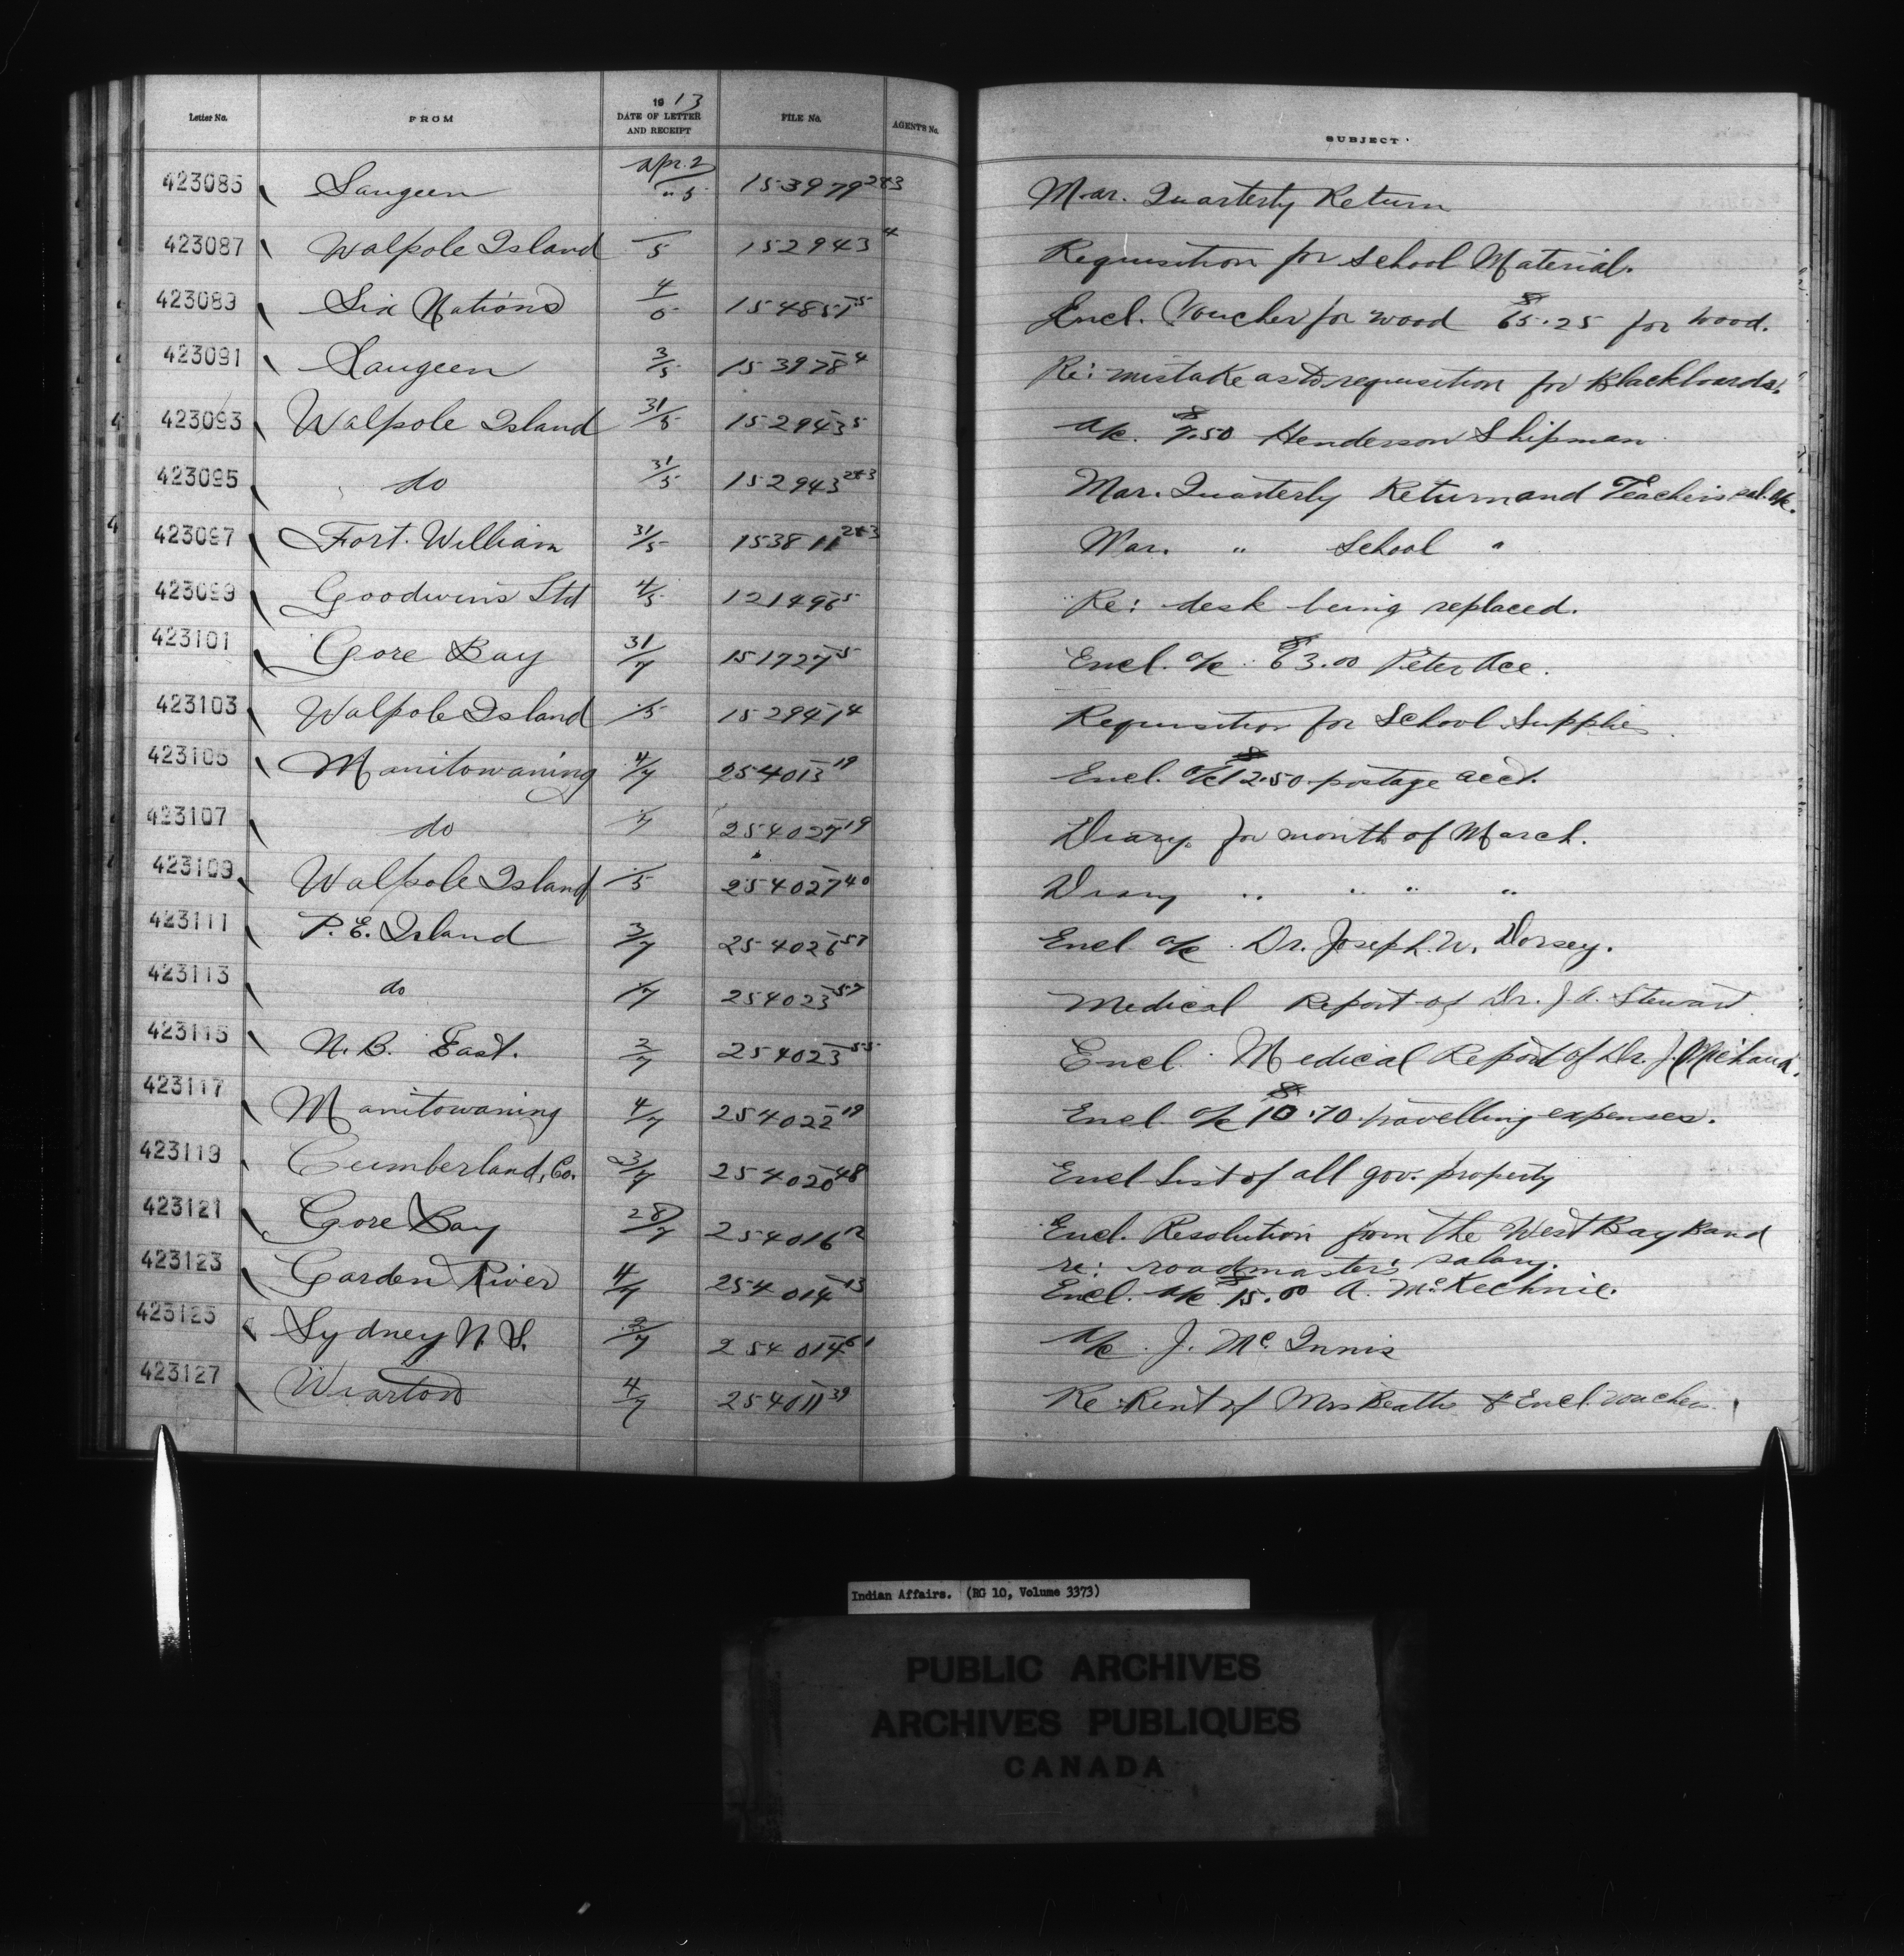 1913
Letter No. FROM DATE OF LETTER AND RECEIPT FILE No. AGENT'S No. SUBJECT
423085 Saugeen Apr. 2 / " 5 153979 2&3 Mar. Quarterly Return
423087 Walpole Island 5 152943 4 Requisition for School Material.
423089 Six Nations 4/5 154851 5 Encl. Voucher for wood $65.25 for wood.
423091 Saugeen 3/5 153978 4 Re: mistake as to requisition for Blackboards.
423093 Walpole Island 31/5 152943 5 a/c. $7.50 Henderson Shipman
423095 do 31/5 152943 2&3 Mar. Quarterly Return and Teachers sal. a/c.
423097 Fort William 31/5 153811 2&3 Mar. " School "
423099 Goodwins Ltd 4/5 121496 5 Re: desk being replaced.
423101 Gore Bay 31/7 151727 5 Encl. a/c $63.00 Peter Ace.
423103 Walpole Island /5 152941 4 Requisition for School Supplies
423105 Manitowaning 4/7 254013 19 Encl. a/c $12.50 postage acct.
423107 do /7 254027 19 Diary for month of March.
423109 Walpole Island /5 254027 40 Diary " " " "
423111 P.E. Island 3/7 254026 57 Encl a/c Dr. Joseph W. Dorsey.
423113 do 1/7 254023 57 Medical Report of Dr. J. A. Stewart
423115 N.B. East. 2/7 254023 55 Encl. Medical Report of Dr. J. Michaud.
423117 Manitowaning 4/7 254022 19 Encl. a/c $10.70 travelling expenses.
423119 Cumberland, Co. 23/7 254020 48 Encl List of all gov. property
423121 Gore Bay 28/7 254016 12 Encl. Resolution from the West Bay Band
re: roadmaster's salary.
423123 Garden River 4/7 254014 13 Encl. a/c $15.00 A. McKechnie.
423125 Sydney N.S. 2/7 254014 61 a/c. J. McInnis
423127 Wiarton 4/7 254011 39 Re: Rent of Mrs Beattie & Encl. voucher.
Indian Affairs. (RG 10, Volume 3373)
PUBLIC ARCHIVES
ARCHIVES PUBLIQUES
CANADA